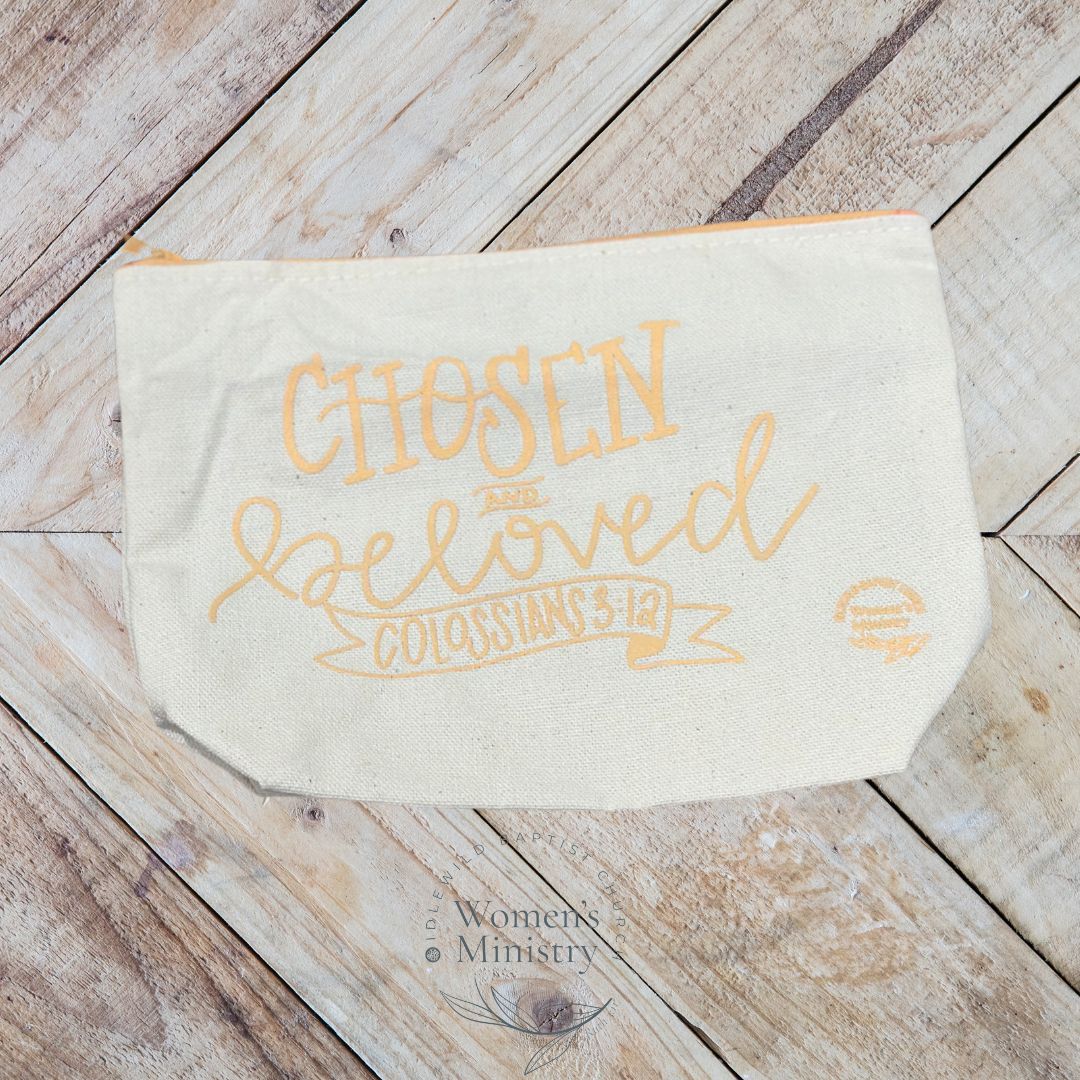 CHOSEN
AND
beloved
COLOSSIANS 3:12
IDLEWILD BAPTIST CHURCH
Women's
Ministry